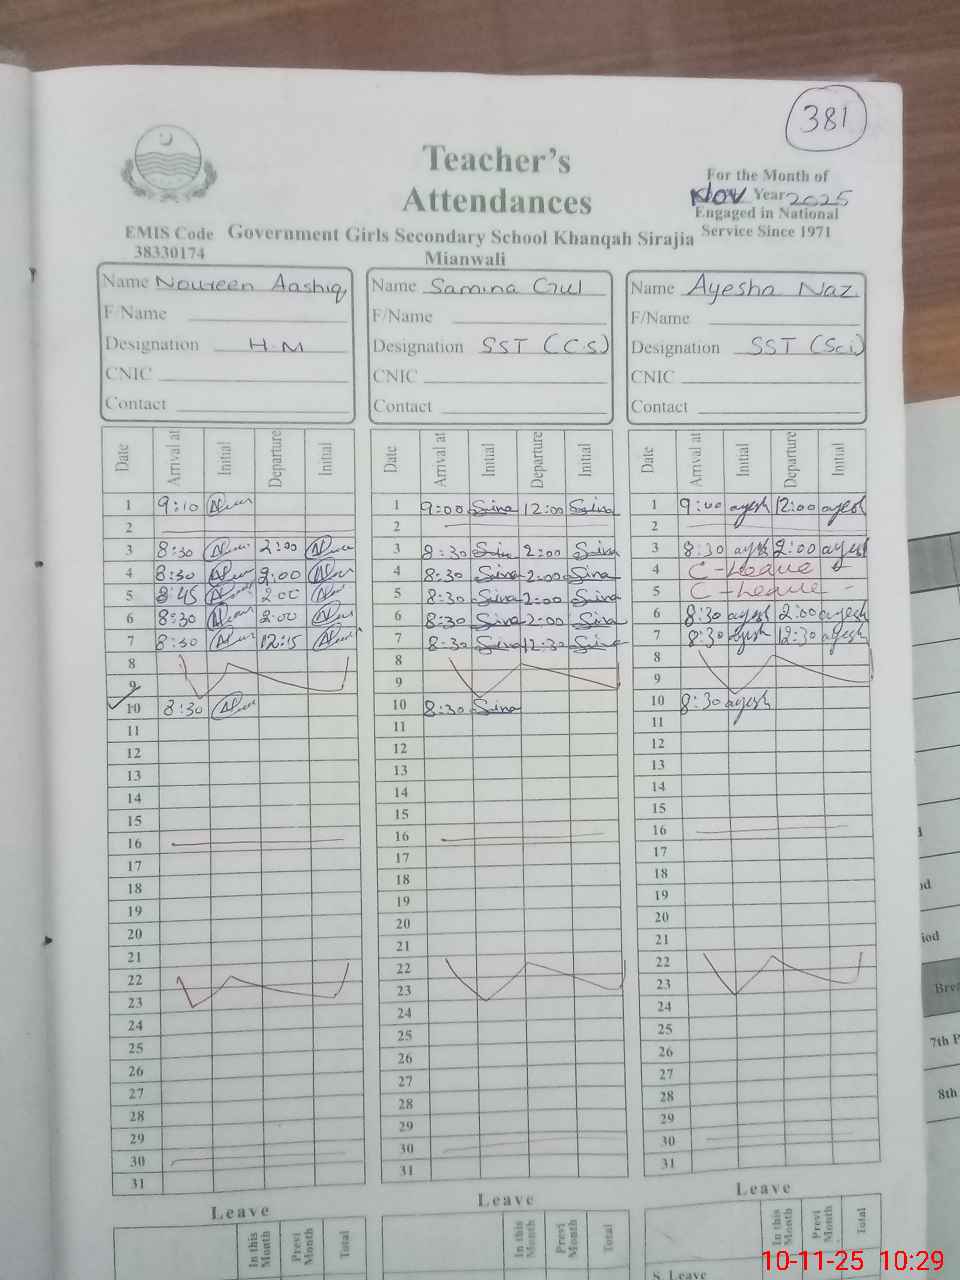 381
Teacher's
Attendances
For the Month of
Nov Year 2025
Engaged in National
Service Since 1971
EMIS Code
38330174
Government Girls Secondary School Khanqah Sirajia
Mianwali
Name Noureen Aashiq Name Samina Gul Name Ayesha Naz
F/Name F/Name F/Name
Designation H.M Designation SST (C.S) Designation SST (Sci)
CNIC CNIC CNIC
Contact Contact Contact
Date Arrival at Initial Departure Initial Date Arrival at Initial Departure Initial Date Arrival at Initial Departure Initial
1 9:10 1 9:00 Sina 12:00 Sina 1 9:00 ayesh 12:00 ayesh
2 2 2
3 8:30 2:00 3 8:30 Sina 2:00 Sina 3 8:30 ayesh 2:00 ayesh
4 8:30 2:00 4 8:30 Sina 2:00 Sina 4 C-Leave
5 8:45 2:00 5 8:30 Sina 2:00 Sina 5 C-Leave
6 8:30 2:00 6 8:30 Sina 2:00 Sina 6 8:30 ayesh 2:00 ayesh
7 8:30 12:15 7 8:30 Sina 12:30 Sina 7 8:30 ayesh 12:30 ayesh
8 8 8
9 9 9
10 8:30 10 8:30 Sina 10 8:30 ayesh
11 11 11
12 12 12
13 13 13
14 14 14
15 15 15
16 16 16
17 17 17
18 18 18
19 19 19
20 20 20
21 21 21
22 22 22
23 23 23
24 24 24
25 25 25
26 26 26
27 27 27
28 28 28
29 29 29
30 30 30
31 31 31
Leave Leave Leave
In this Month Previ Month Total In this Month Previ Month Total In this Month Previ Month Total
S. Leave
iod
Bre
7th P
8th
10-11-25 10:29